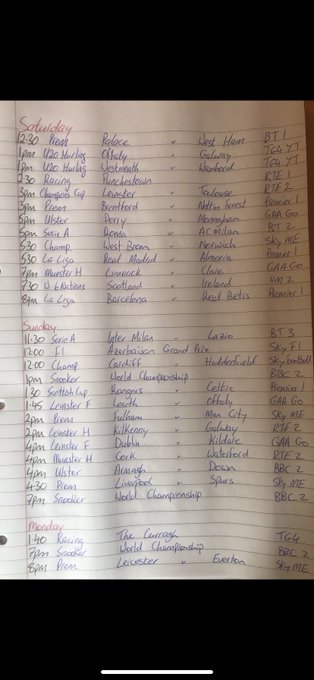 Saturday
12:30 Prem Palace v West Ham BT 1
1pm U20 Hurling Offaly v Galway TG4 YT
1pm U20 Hurling Westmeath v Wexford TG4 YT
2:30 Racing Punchestown RTE 1
3pm Champions Cup Leinster v Toulouse RTE 2
3pm Prem Brentford v Nottm Forest Premier 1
5pm Ulster Derry v Monaghan GAA Go
5pm Serie A Roma v AC Milan BT 2
5:30 Champ. West Brom v Norwich Sky ME
5:30 La Liga Real Madrid v Almeria Premier 1
7pm Munster H Limerick v Clare GAA Go
7:30 W6Nations Scotland v Ireland VM 2
8pm La Liga Barcelona v Real Betis Premier 1
Sunday
11:30 Serie A Inter Milan v Lazio BT 3
12:00 F1 Azerbaijan Grand Prix Sky F1
12:00 Champ Cardiff v Huddersfield Sky Football
1pm Snooker World Championship BBC 2
1:30 Scottish Cup Rangers v Celtic Premier 1
1:45 Leinster F Louth v Offaly GAA Go
2pm Prem Fulham v Man City Sky ME
2pm Leinster H Kilkenny v Galway RTE 2
4pm Leinster F Dublin v Kildare GAA Go
4pm Munster H Cork v Waterford RTE 2
4pm Ulster Armagh v Down BBC 2
4:30 Prem Liverpool v Spurs Sky ME
7pm Snooker World Championship BBC 2
Monday
1:40 Racing The Curragh TG4
7pm Snooker World Championship BBC 2
8pm Prem Leicester v Everton Sky ME